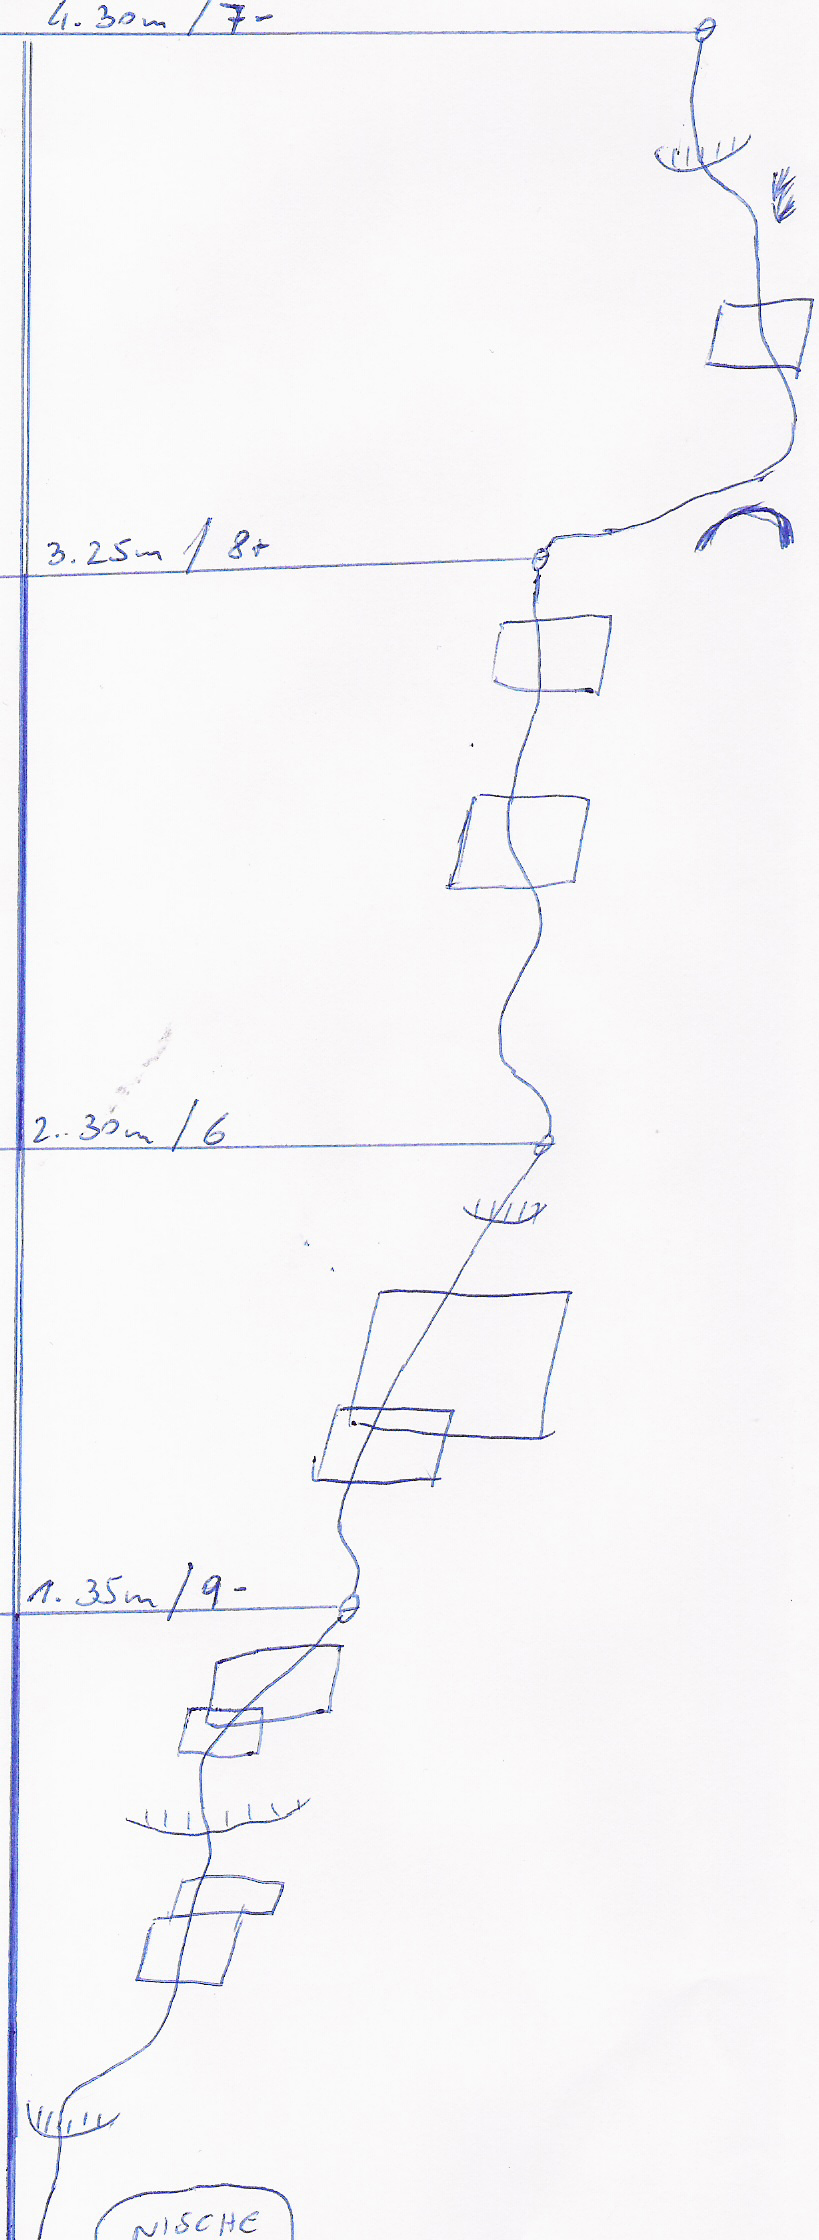 4. 30m / 7-
3. 25m / 8+
2. 30m / 6
1. 35m / 9-
NISCHE